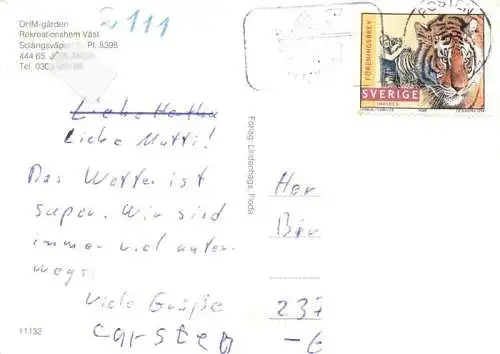 2111
DHM-gården
Rekreationshem Väst
Solängsvägen Pl. 8398
444 65
Tel. 0303
POSTEN
FÖRENINGSBREV
SVERIGE
INRIKES
Liebe Hertha
Liebe Mutti!
Das Wetter ist
super. Wir sind
immer viel unter-
wegs.
Viele Grüße
Carsten
11132
Förlag: Lindenhags, Floda
Her
Bir
237